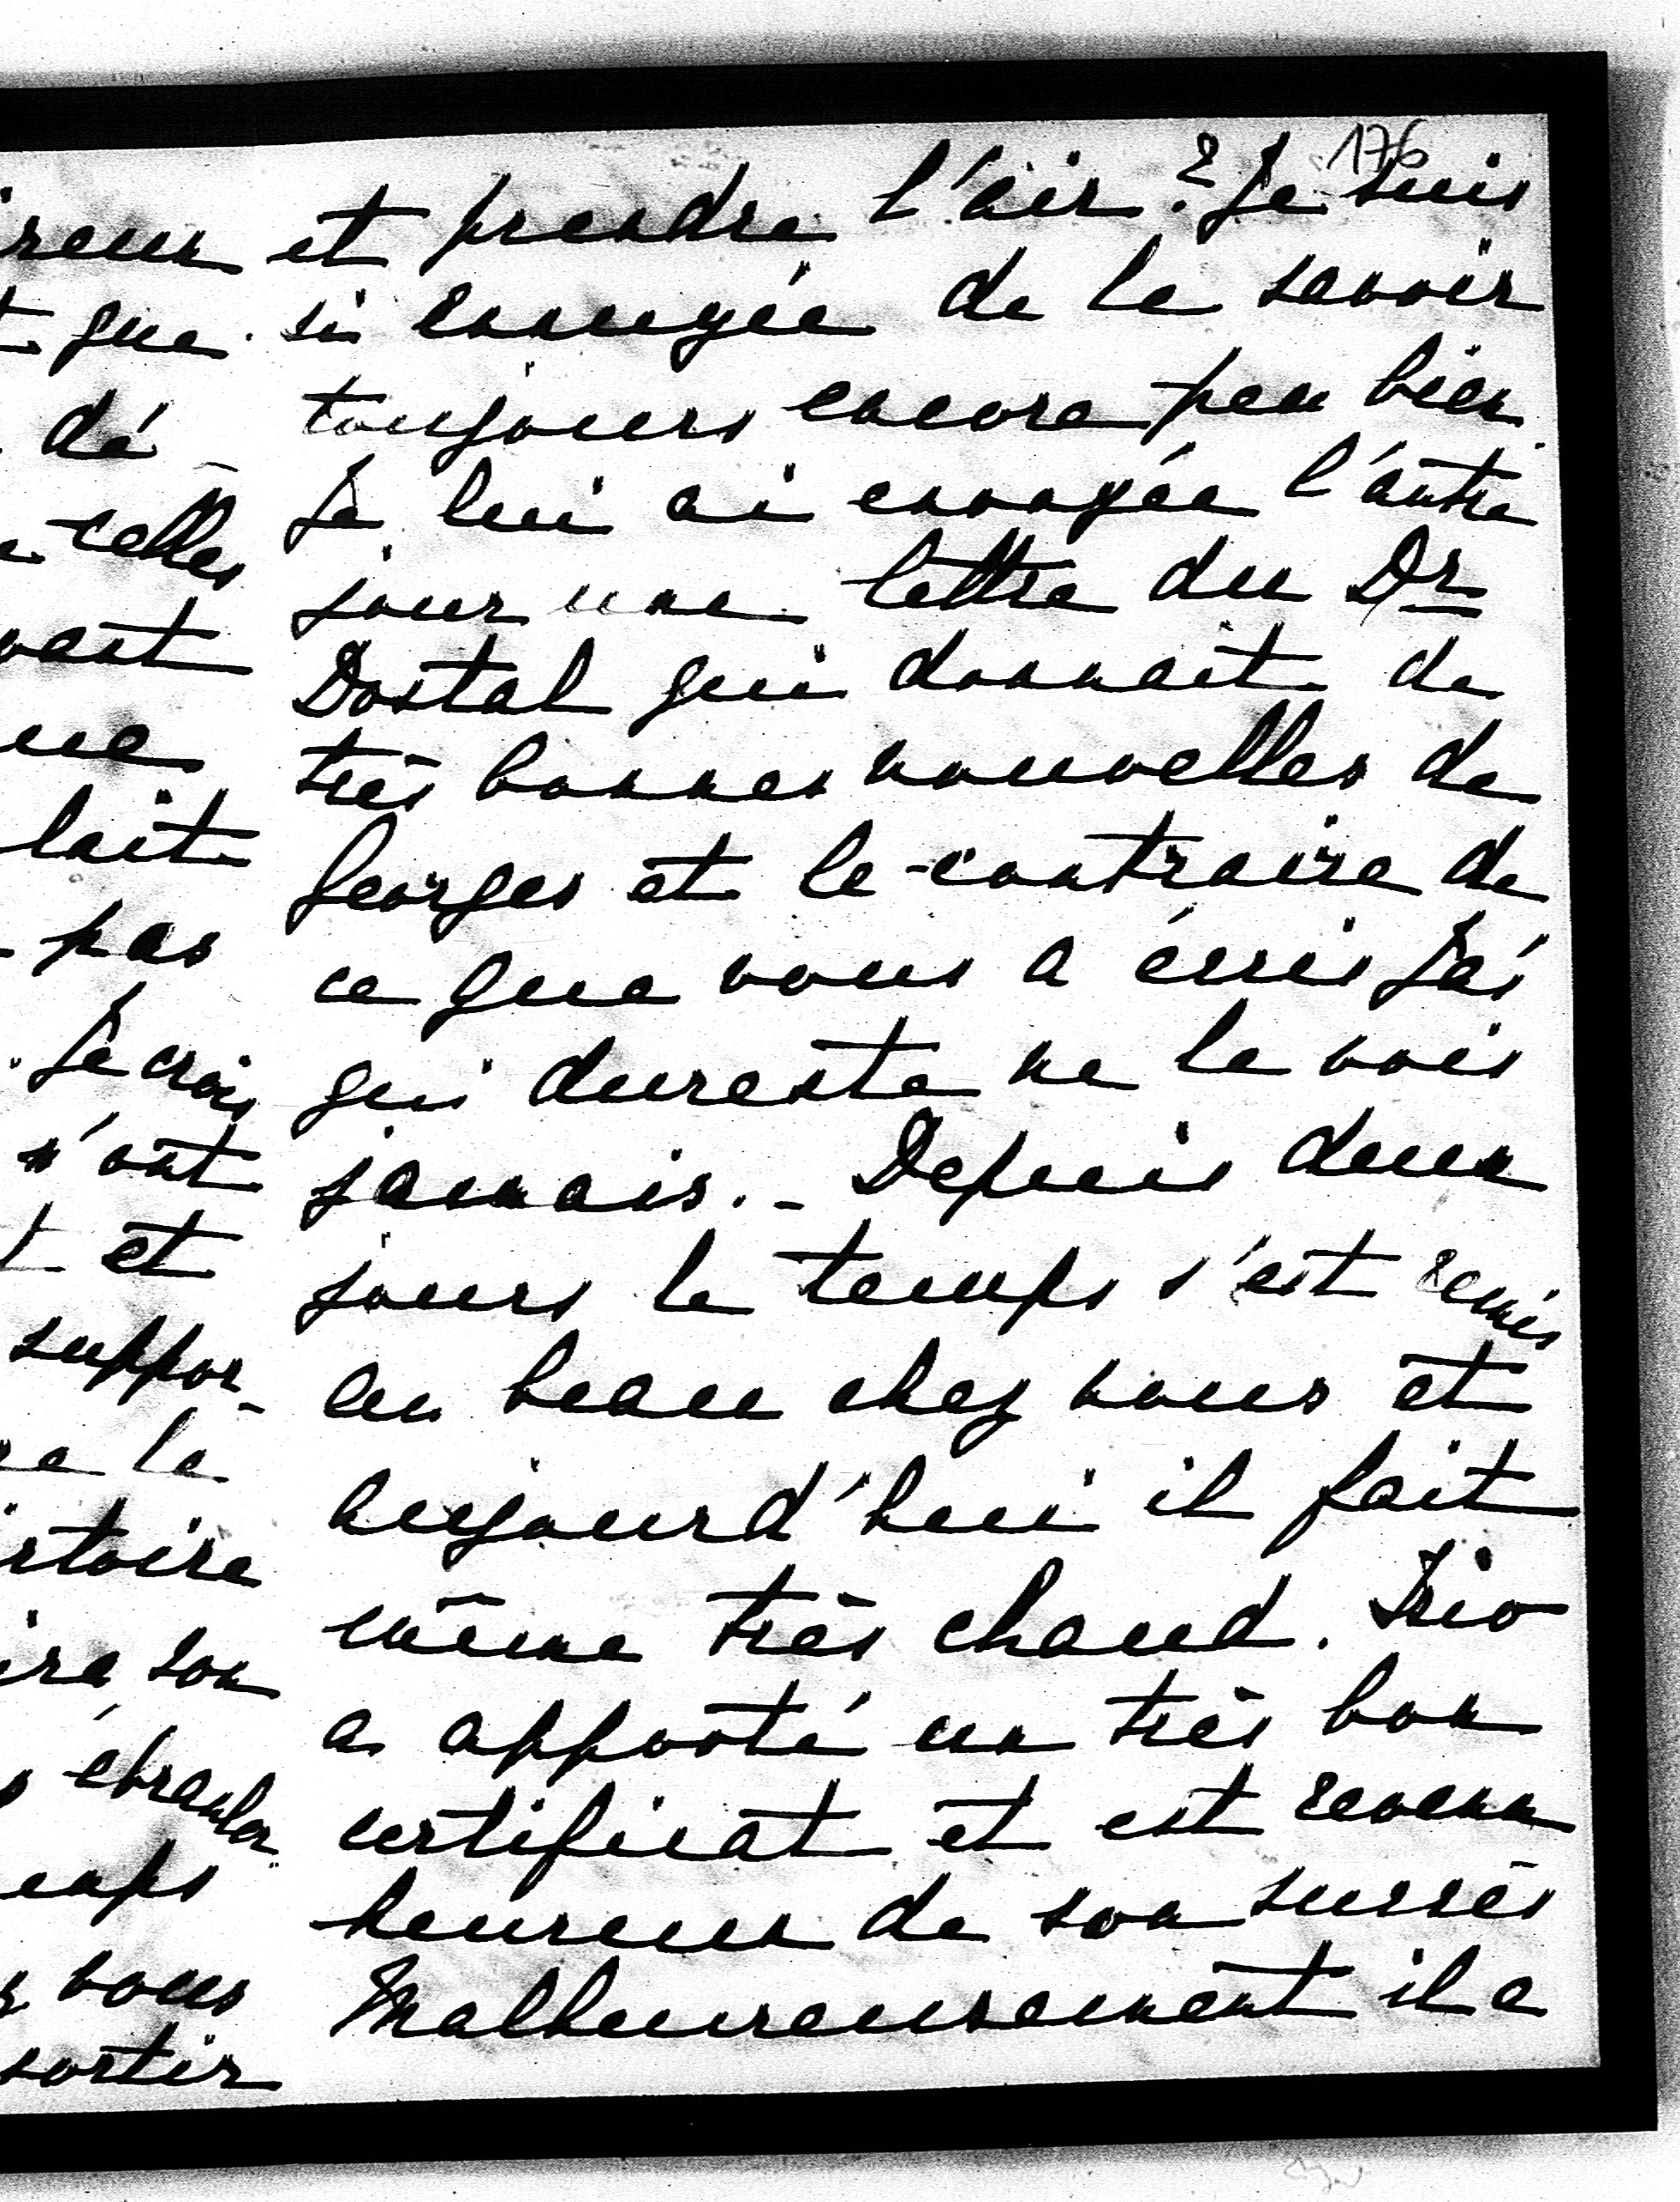 176
reux
que
dé
celles
vait
ue
lait
pas
Je crois
n'ont
t et
suppor-
la
stoire
son
ébranler
emps
vous
sortir
et prendre l'air? Je suis
si ennuyée de le savoir
toujours encore peu bien.
Je lui ai envoyée l'autre
jour une lettre du Dr
Dostal qui donnait de
très bonnes nouvelles de
Georges et le contraire de
ce que vous a écris
qui dureste ne le vois
jamais. - Depuis deux
jours le temps s'est remis
au beau chez nous et
aujourd'hui il fait
même très chaud.
a apporté un très bon
certificat et est revenu
heureux de son succès
Malheureusement il a